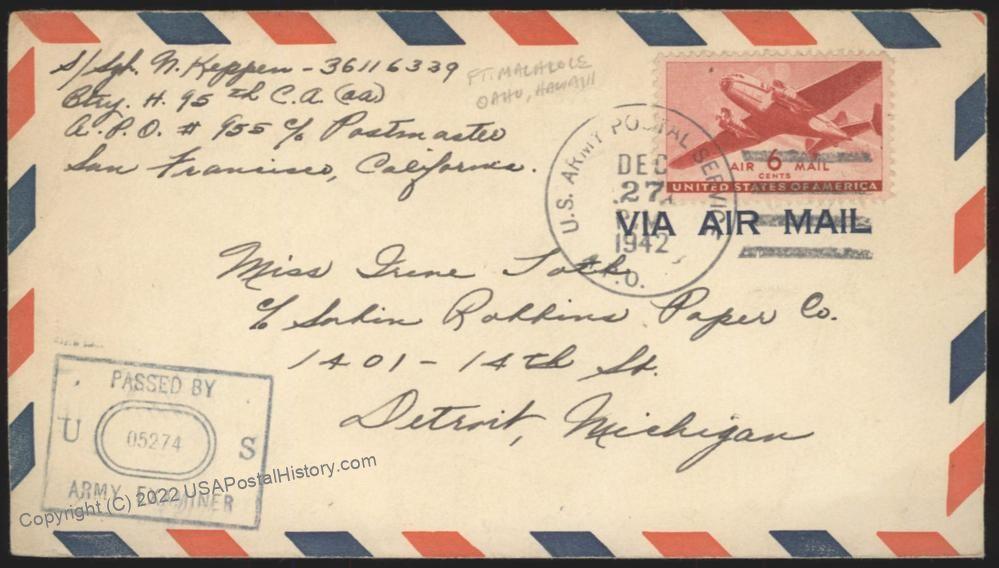 S/Sgt. N. Keppen - 36116339
Btry. H. 95th C.A. (aa)
A.P.O. # 955 c/o Postmaster
San Francisco, California.
FT. MALAKOLE
OAHU, HAWAII
AIR 6 MAIL
CENTS
UNITED STATES OF AMERICA
U.S. ARMY POSTAL SERVICE
DEC
27
1942
VIA AIR MAIL
Miss Irene
c/o Sorkin Robbins Paper Co.
1401 - 14th St.
Detroit, Michigan
PASSED BY
U 05274 S
ARMY EXAMINER
Copyright (C) 2022 USAPostalHistory.com